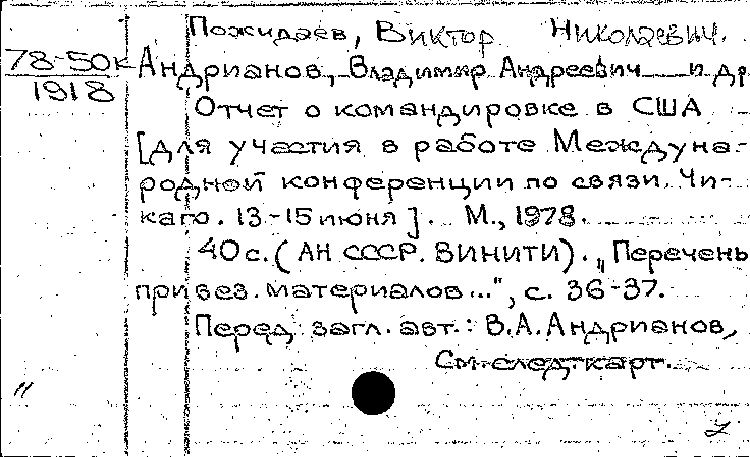 Пожидаев, Виктор Николаевич.
78-50к
1918
Андрианов, Владимир Андреевич и др
Отчет о командировке в США
[для участия в работе Междуна-
родной конференции по связи. Чи-
каго. 13-15 июня]. М., 1978.
40 с. (АН СССР. ВИНИТИ). „Перечень
привез. материалов...", с. 36-37.
Перед загл. авт.: В.А. Андрианов,
См. след. карт.
"